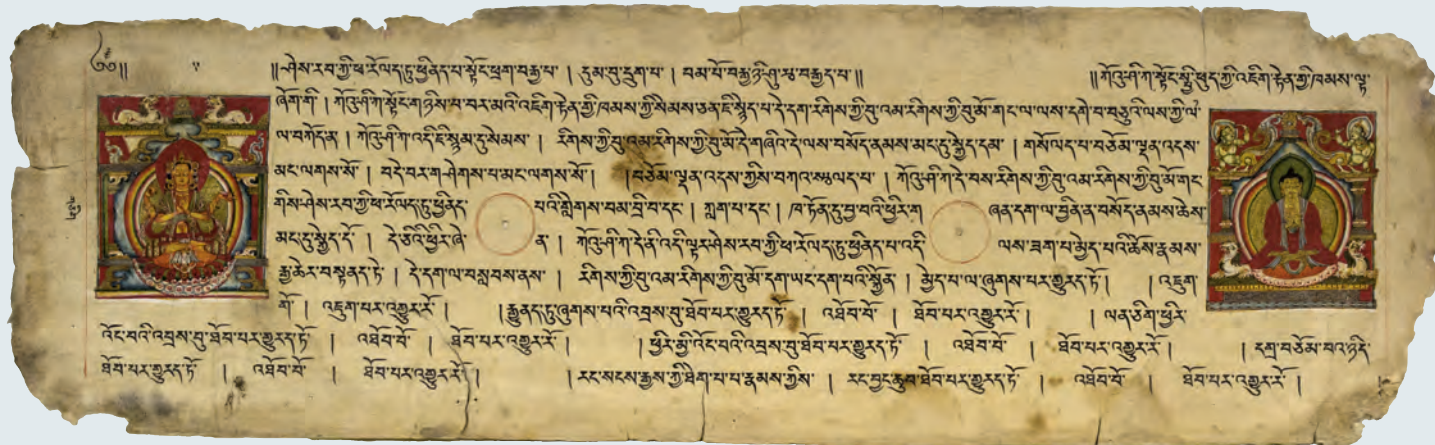 ༄༅།། ༎ཤེས་རབ་ཀྱི་ཕ་རོལད་ཏུ་ཕྱིནད་པ་སྟོང་ཕྲག་བརྒྱ་པ་ ། དུམ་བུ་དྲུག་པ་ ། བམ་པོ་བརྒྱ་ཉི་ཤུ་རྩ་བརྒྱད་པ་༎ ༎ཀོའུ་ཤི་ཀ་སྟོང་སྤྱི་ཕུད་ཀྱི་འཇིག་རྟེན་གྱི་ཁམས་ལྟ་
ཞོག་གི ། ཀོའུ་ཤི་ཀ་སྟོང་གཉིས་པ་བར་མའི་འཇིག་རྟེན་གྱི་ཁམས་ཀྱི་སེམས་ཅན་ཇི་སྙེད་པ་དེ་དག་རིགས་ཀྱི་བུ་འམ་རིགས་ཀྱི་བུ་མོ་གང་ལ་ལས་དགེ་བ་བཅུའི་ལས་ཀྱི་ལ་
ལ་བཀོད་ན ། ཀོའུ་ཤི་ཀ་འདི་ཇི་སྙམ་དུ་སེམས་ ། རིགས་ཀྱི་བུ་འམ་རིགས་ཀྱི་བུ་མོ་དེ་གཞི་དེ་ལས་བསོད་ནམས་མང་དུ་སྐྱེད་དམ ། གསོལད་པ་བཅོམ་ལྡན་འདས་
མང་ལགས་སོ ། བདེ་བར་གཤེགས་པ་མང་ལགས་སོ ། །བཅོམ་ལྡན་འདས་ཀྱིས་བཀའ་སྩལད་པ་ ། ཀོའུ་ཤི་ཀ་དེ་བས་རིགས་ཀྱི་བུ་འམ་རིགས་ཀྱི་བུ་མོ་གང་
གིས་ཤེས་རབ་ཀྱི་ཕ་རོལད་ཏུ་ཕྱིནད་ པའི་གླེགས་བམ་བྲི་བ་དང་ ། ཀླག་པ་དང་ ། ཁ་ཏོན་དུ་བྱ་བའི་ཕྱིར་ག ཞན་དག་ལ་བྱིན་ན་བསོད་ནམས་ཆེས་
མང་དུ་སྐྱེད་དོ ། དེ་ཅིའི་ཕྱིར་ཞེ་ ན ། ཀོའུ་ཤི་ཀ་དེ་ནི་འདི་ལྟར་ཤེས་རབ་ཀྱི་ཕ་རོལད་ཏུ་ཕྱིནད་པ་འདི་ ལས་ཟག་པ་མྱེད་པའི་ཆོས་རྣམས་
རྒྱ་ཆེར་བསྟནད་ཏེ ། དེ་དག་ལ་བསླབས་ནས་ ། རིགས་ཀྱི་བུ་འམ་རིགས་ཀྱི་བུ་མོ་དག་ཡང་དག་པའི་སྐྱོན ། མྱེད་པ་ལ་ཞུགས་པར་གྱུརད་ཏོ ། ། འཇུག་
གོ ། འཇུག་པར་འགྱུར་རོ ། །རྒྱུནད་དུ་ཞུགས་པའི་འབྲས་བུ་ཐོབ་པར་གྱུརད་ཏོ ། འཐོབ་བོ ། ཐོབ་པར་འགྱུར་རོ ། ། ལན་ཅིག་ཕྱིར་
འོང་བའི་འབྲས་བུ་ཐོབ་པར་གྱུརད་ཏོ ། འཐོབ་བོ ། ཐོབ་པར་འགྱུར་རོ ། །ཕྱིར་མྱི་འོང་བའི་འབྲས་བུ་ཐོབ་པར་གྱུརད་ཏོ ། འཐོབ་བོ ། ཐོབ་པར་འགྱུར་རོ ། ། དགྲ་བཅོམ་བའ་ཉིད་
ཐོབ་པར་གྱུརད་ཏོ ། འཐོབ་བོ ། ཐོབ་པར་འགྱུར་རོ ། །རང་སངས་རྒྱས་ཀྱི་ཐེག་པ་པ་རྣམས་ཀྱིས་ ། རང་བྱང་ཆུབ་ཐོབ་པར་གྱུརད་ཏོ ། འཐོབ་བོ ། ཐོབ་པར་འགྱུར་རོ །